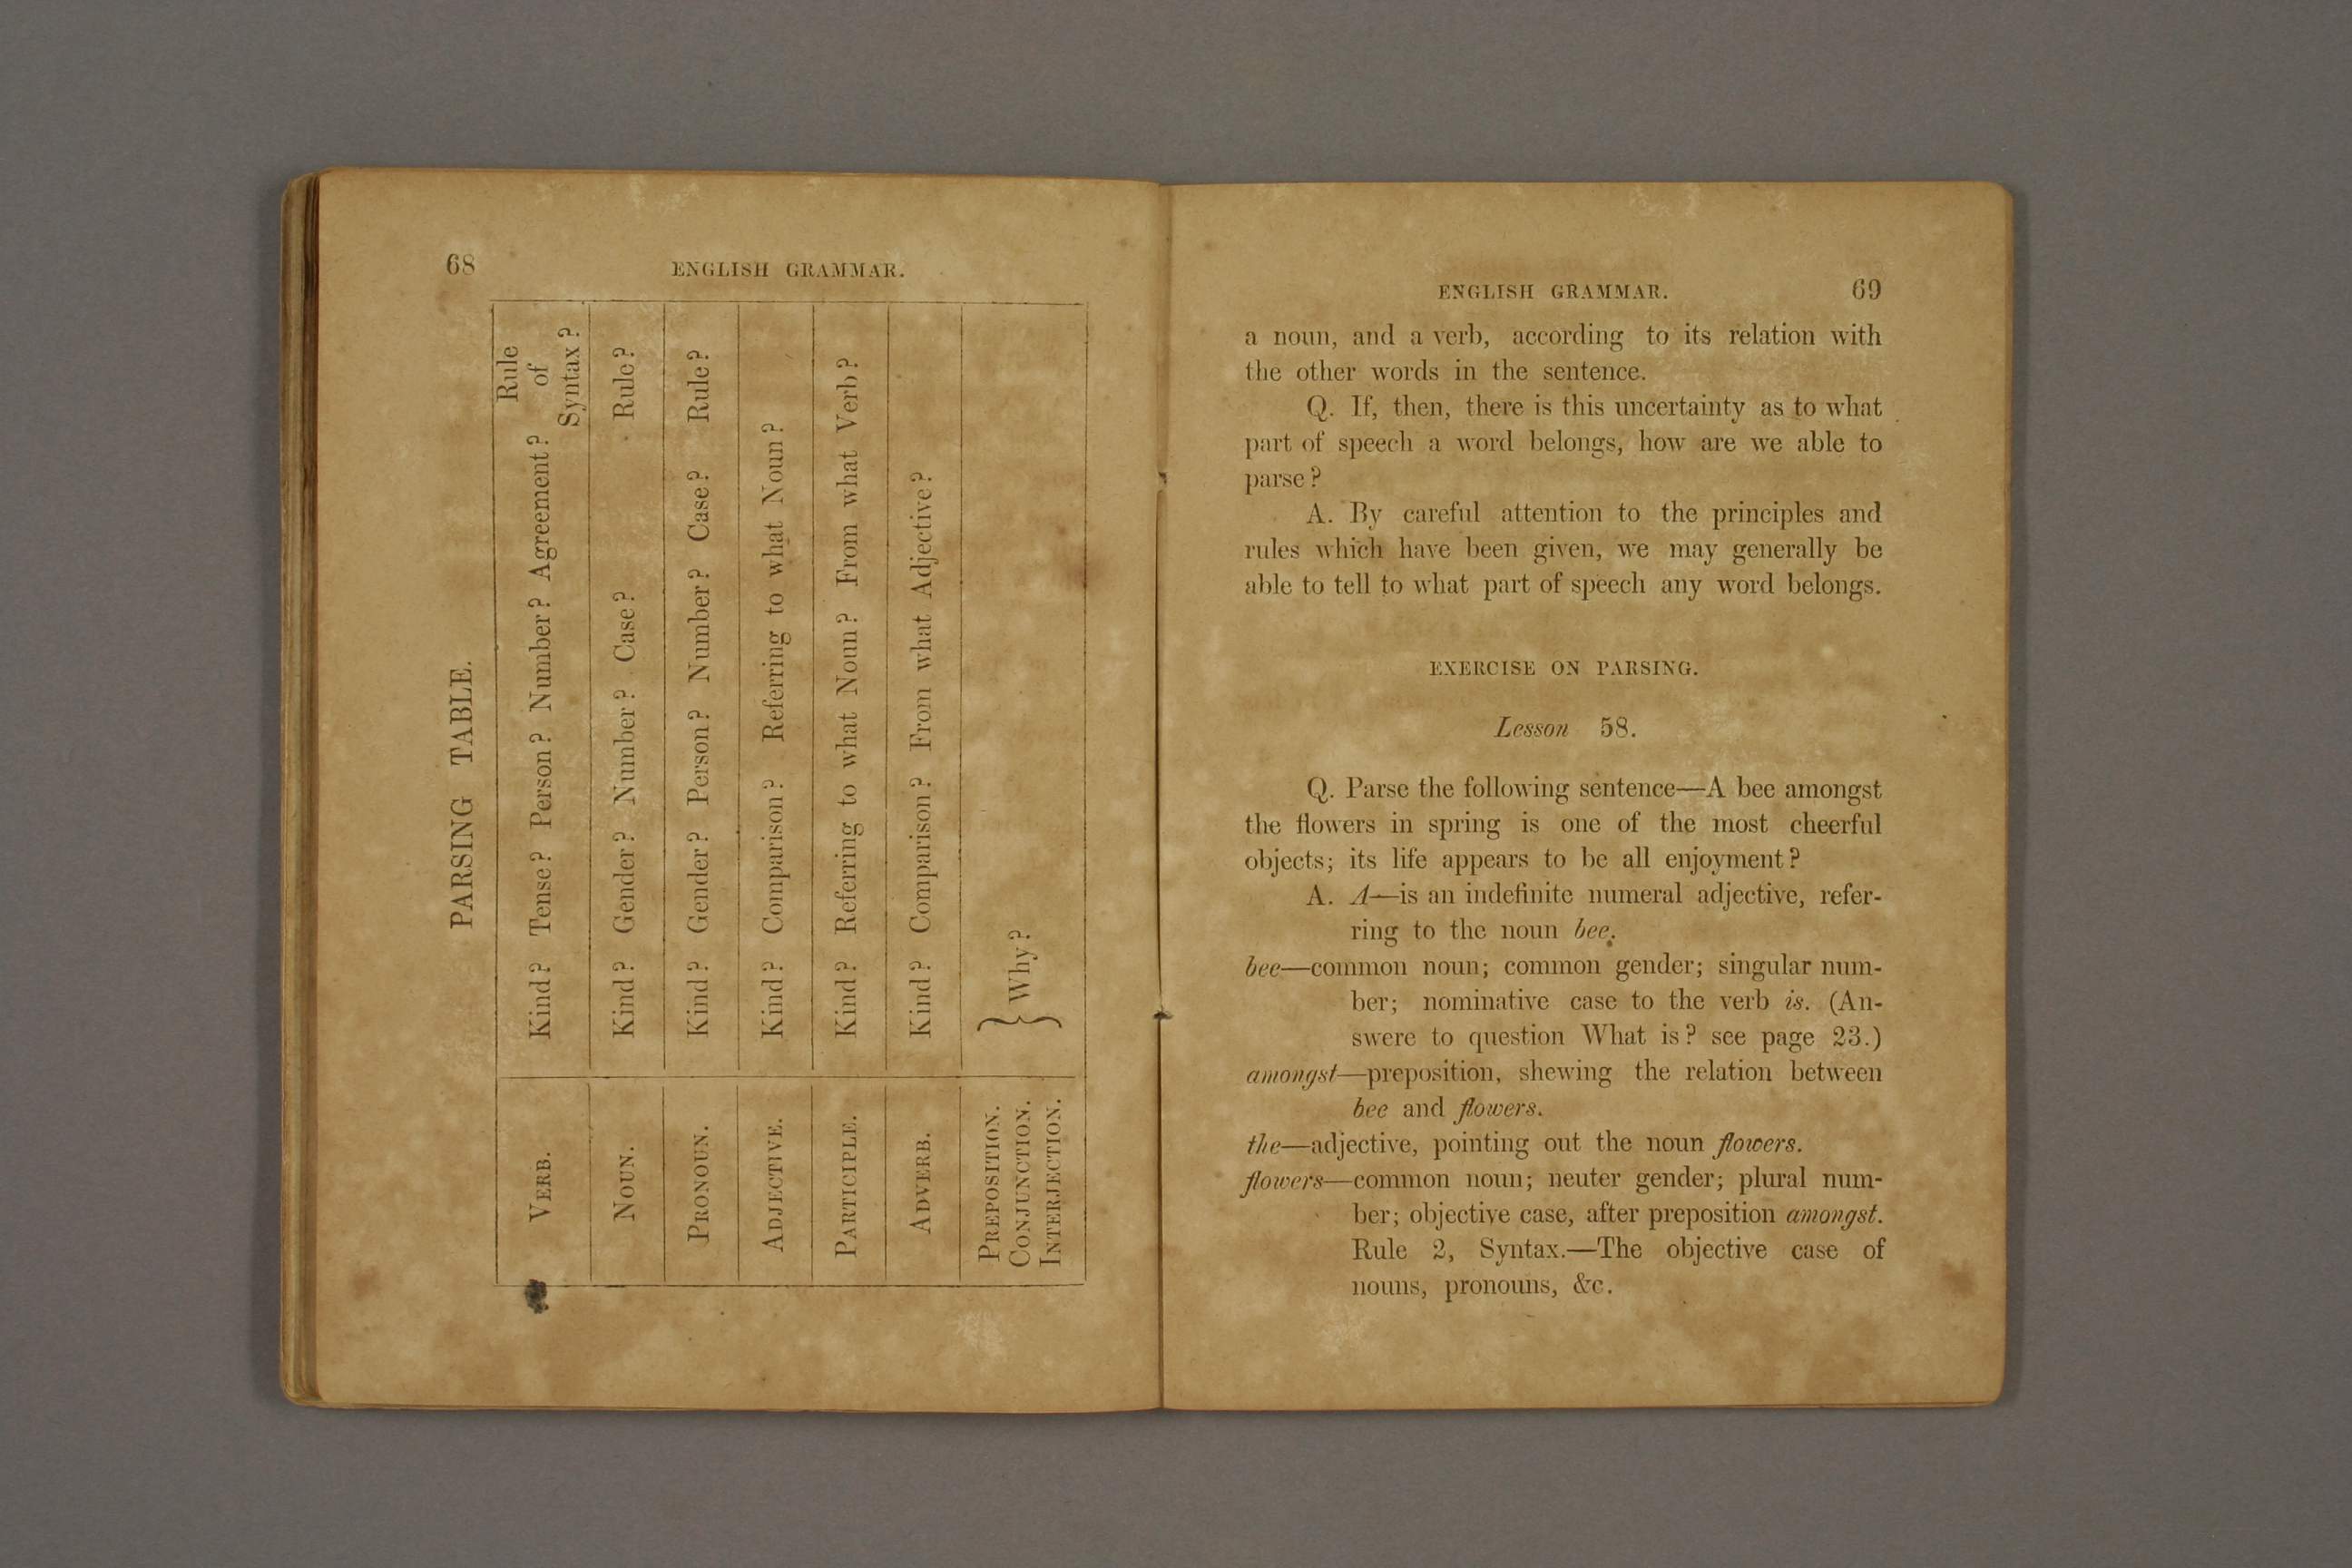 68
ENGLISH GRAMMAR.
PARSING TABLE.
VERB. Kind? Tense? Person? Number? Agreement? Rule of Syntax?
NOUN. Kind? Gender? Number? Case? Rule?
PRONOUN. Kind? Gender? Person? Number? Case? Rule?
ADJECTIVE. Kind? Comparison? Referring to what Noun?
PARTICIPLE. Kind? Referring to what Noun? From what Verb?
ADVERB. Kind? Comparison? From what Adjective?
PREPOSITION.
CONJUNCTION. } Why?
INTERJECTION.
ENGLISH GRAMMAR. 69
a noun, and a verb, according to its relation with
the other words in the sentence.
Q. If, then, there is this uncertainty as to what
part of speech a word belongs, how are we able to
parse?
A. By careful attention to the principles and
rules which have been given, we may generally be
able to tell to what part of speech any word belongs.
EXERCISE ON PARSING.
Lesson 58.
Q. Parse the following sentence—A bee amongst
the flowers in spring is one of the most cheerful
objects; its life appears to be all enjoyment?
A. A—is an indefinite numeral adjective, refer-
ring to the noun bee.
bee—common noun; common gender; singular num-
ber; nominative case to the verb is. (An-
swere to question What is? see page 23.)
amongst—preposition, shewing the relation between
bee and flowers.
the—adjective, pointing out the noun flowers.
flowers—common noun; neuter gender; plural num-
ber; objective case, after preposition amongst.
Rule 2, Syntax.—The objective case of
nouns, pronouns, &c.